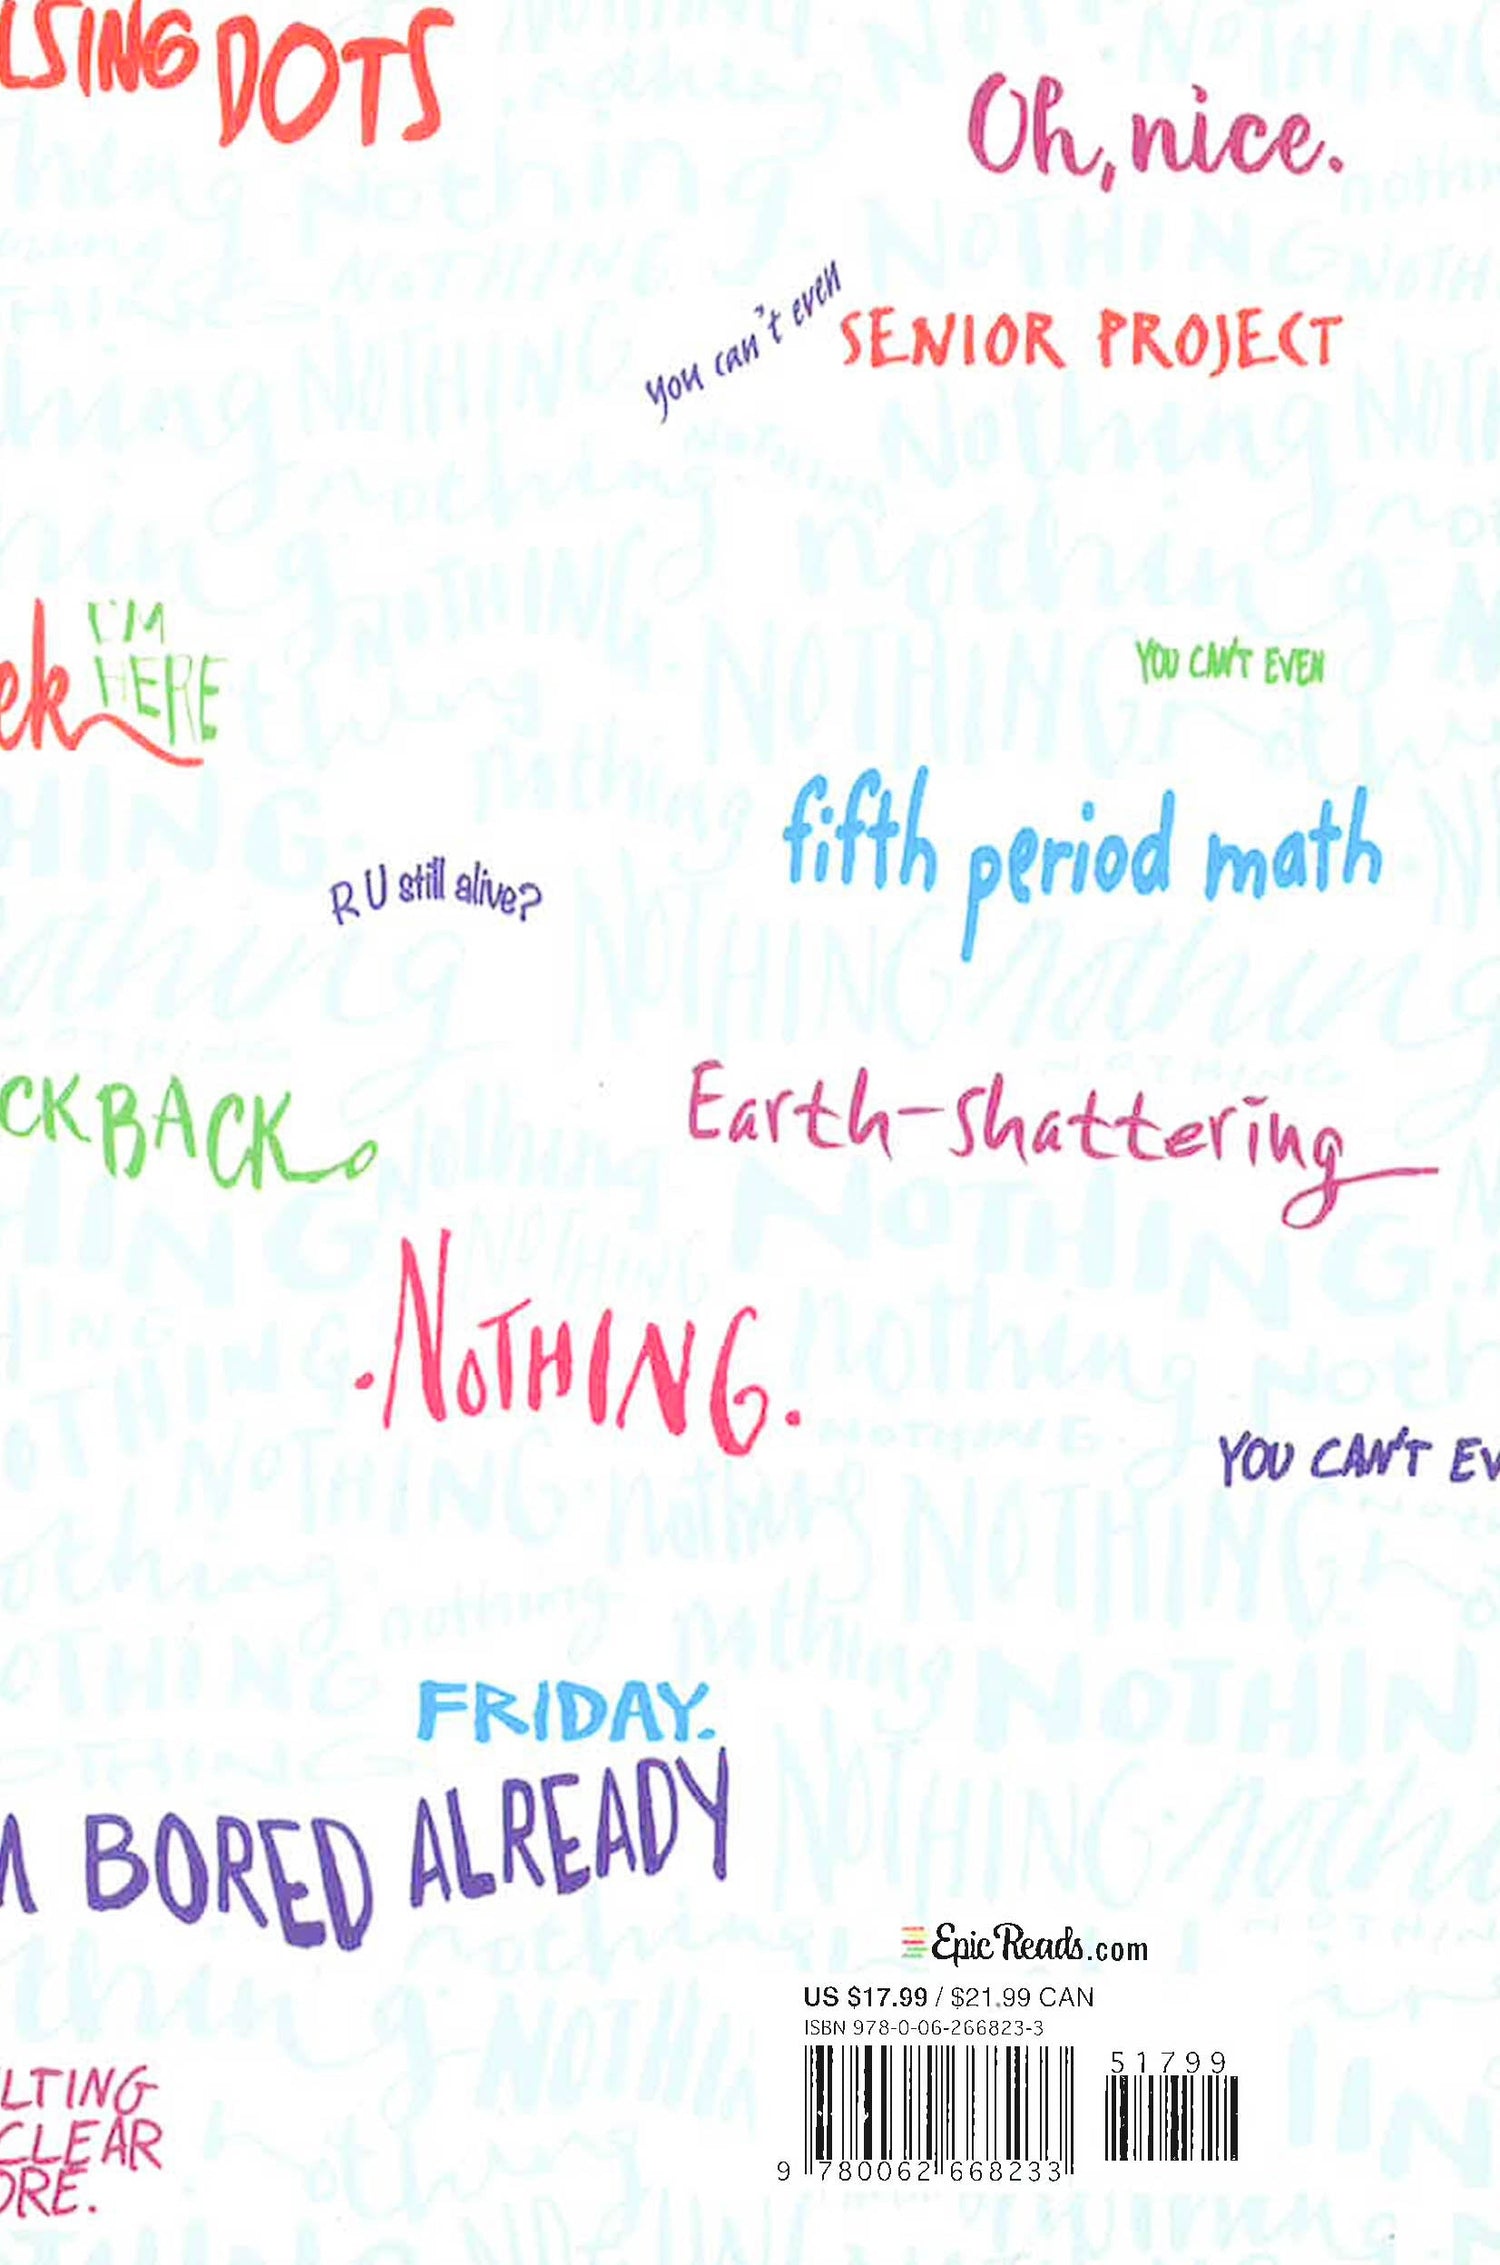 LSING DOTS
Oh, nice.
you can't even
SENIOR PROJECT
ek
I'M
HERE
YOU CAN'T EVEN
fifth period math
R U still alive?
CK BACK
Earth-shattering
.NOTHING.
YOU CAN'T EV
FRIDAY.
BORED ALREADY
EpicReads.com
US $17.99 / $21.99 CAN
ISBN 978-0-06-266823-3
51799
9 780062 668233
LTING
CLEAR
ORE.